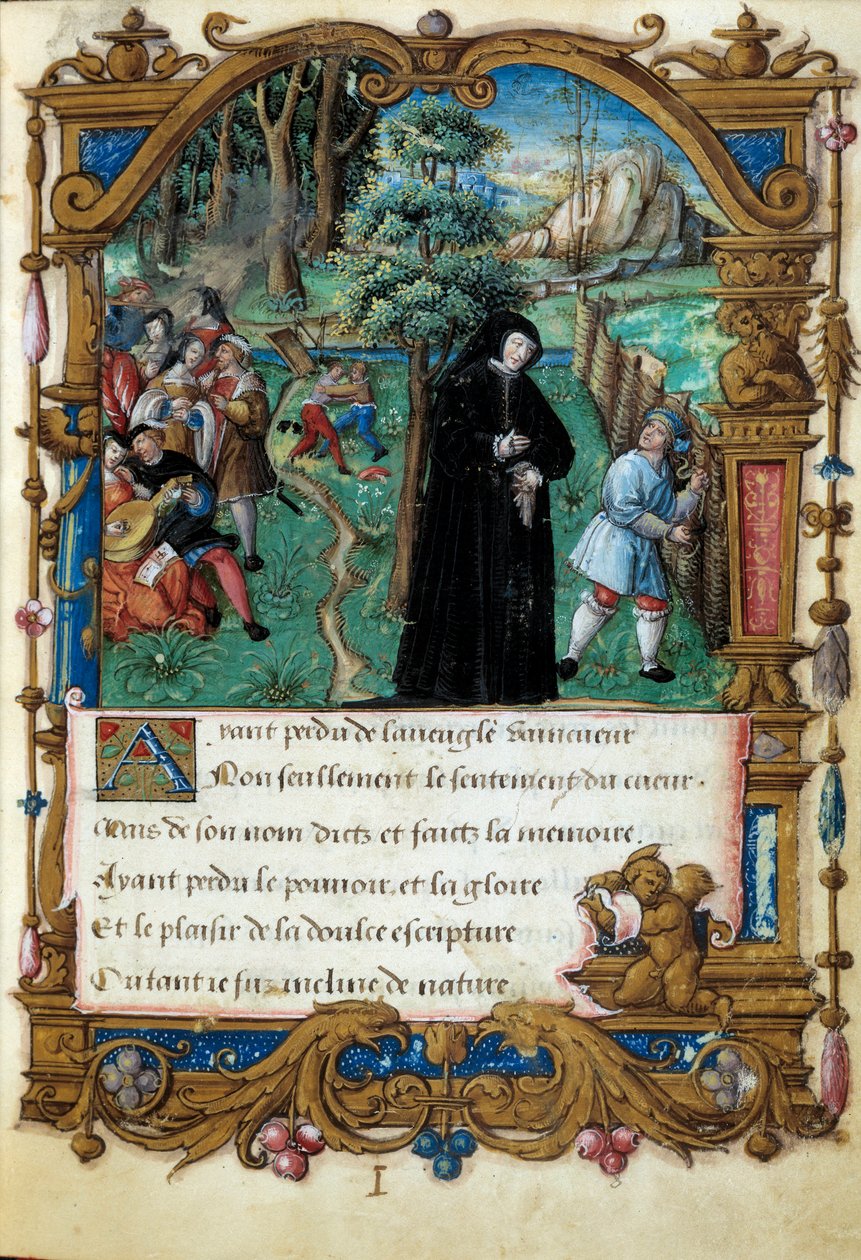 Ayant perdu de laueuglé vaincueur
Non seullement le sentement du cueur.
Mais de son nom dictz et faictz la memoire.
Ayant perdu le pouuoir, et la gloire
Et le plaisir de la doulce escripture
Ou tant ie fuz incline de nature
I